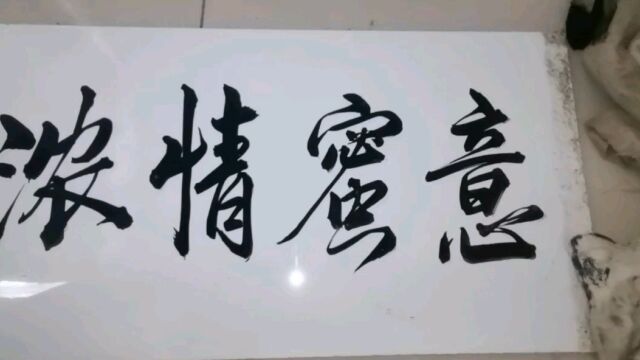 浓情蜜意